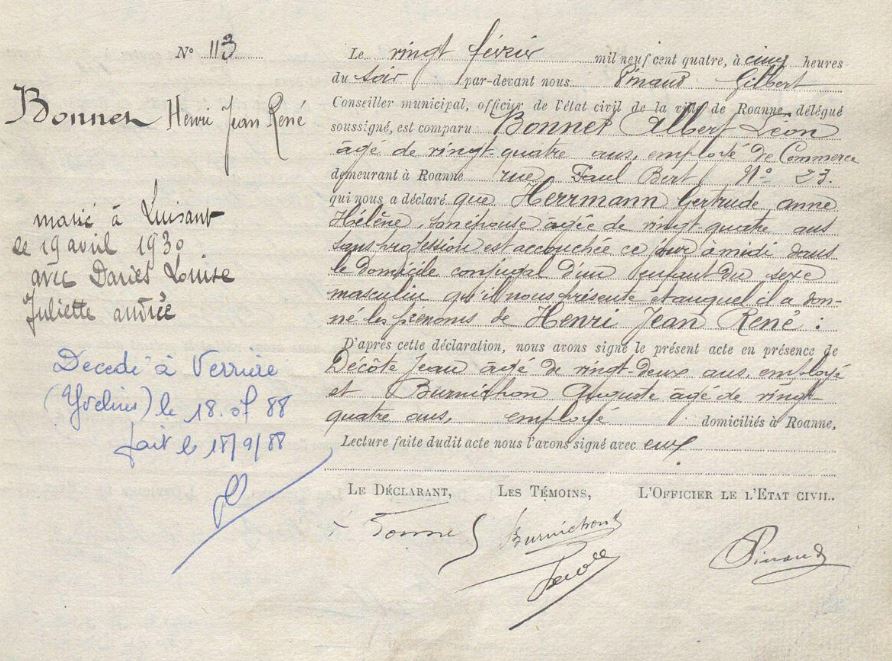 N° 113
Bonnet Henri Jean René
marié à Luisant
le 19 avril 1930
avec Daniel Louise
Juliette andrée
Decedé à Verrière
(Yvelines) le 18. 08 88
fait le 18/9/88
Le vingt février mil neuf cent quatre, à cinq heures
du soir par-devant nous Pinaud Gilbert
Conseiller municipal, officier de l'état civil de la ville de Roanne, délégué
soussigné, est comparu Bonnet Albert Léon
âgé de vingt quatre ans, employé de Commerce
demeurant à Roanne rue Paul Bert, N° 23.
qui nous a déclaré que Herrmann Gertrude anne
Hélène, son épouse âgée de vingt quatre ans
sans profession est accouchée ce jour à midi dans
le domicile conjugal d'un enfant du sexe
masculin qu'il nous présente et auquel il a don-
né les prénoms de Henri Jean René :
D'après cette déclaration, nous avons signé le présent acte en présence de
Décôte Jean âgé de vingt-deux ans, employé
et Burnichon Auguste âgé de vingt-
quatre ans, employé domiciliés à Roanne,
Lecture faite dudit acte nous l'avons signé avec eux
LE DÉCLARANT, LES TÉMOINS, L'OFFICIER DE L'ETAT CIVIL.
Bonnet Burnichon Pinaud